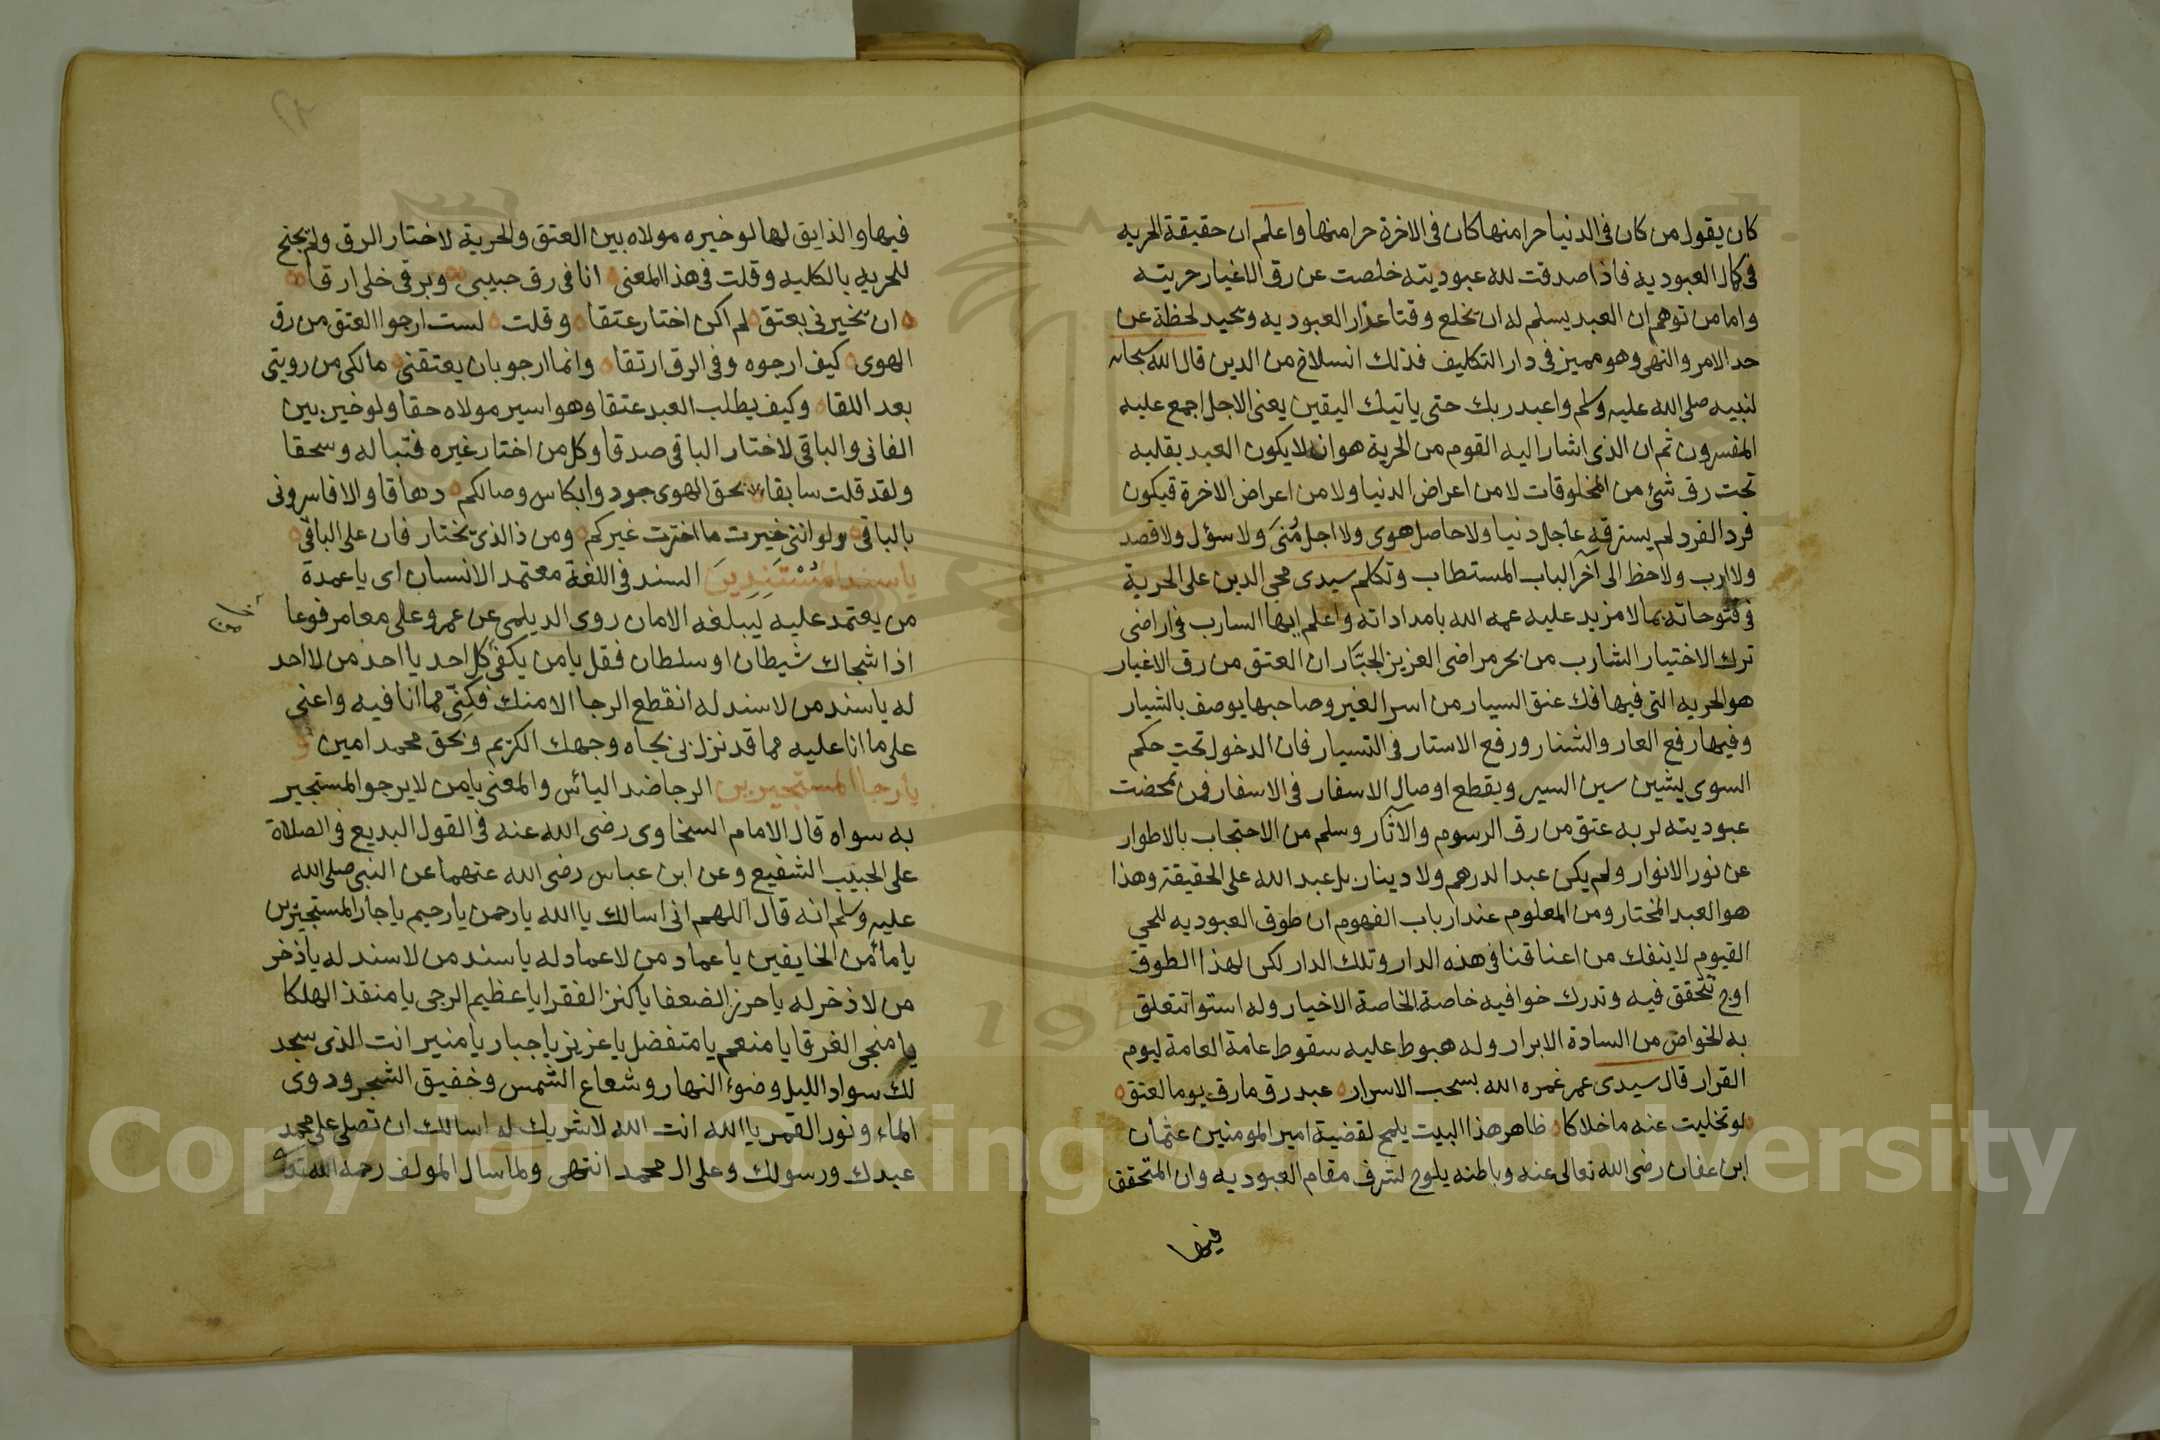 كان يقول من كان فى الدنيا حرا منها كان فى الاخرة حرا منها واعلم ان حقيقة الحريه
فى كمال العبوديه فاذا صدقت لله عبوديته خلصت عن رق الاغيار حريته
واما من توهم ان العبد يسلم له ان يخلع وقتا عذار العبوديه ويحيد لحظة عن
حد الامر والنهى وهو مميز فى دار التكليف فذلك انسلاخ من الدين قال الله سبحانه
لنبيه صلى الله عليه وسلم واعبد ربك حتى ياتيك اليقين يعنى الاجل اجمع عليه
المفسرون ثم ان الذى اشار اليه القوم من الحرية هو ان لا يكون العبد بقلبه
تحت رق شئ من المخلوقات لا من اعراض الدنيا ولا من اعراض الاخرة فيكون
فرد الفرد لم يسترقه عاجل دنيا ولا حاصل هوى ولا اجل مُنىَ ولا سؤل ولا قصد
ولا ارب ولا حظ الى آخر الباب المستطاب وتكلم سيدى محيى الدين على الحرية
فى فتوحاته بما لا مزيد عليه عمه الله بامداداته واعلم ايها السارب فى اراضى
ترك الاختيار الشارب من بحر مراضى العزيز الجبَّار ان العتق من رق الاغيار
هو الحريه التى فيها فك عنق السيار من اسر الغير وصاحبها يوصف بالشيار
وفيها رفع العار والشنار ورفع الاستار فى التسيار فان الدخول تحت حكم
السوى يشين سين السير ويقطع اوصال الاسفار فى الاسفار فمن تمحضت
عبوديته لربه عتق من رق الرسوم والآثار وسلم من الاحتجاب بالاطوار
عن نور الانوار ولم يكن عبد الدرهم ولا دينار بل عبد الله على الحقيقة وهذا
هو العبد المختار ومن المعلوم عند ارباب الفهوم ان طوق العبوديه للحى
القيوم لا ينفك من اعناقنا فى هذه الدار وتلك الدار لكن لهذا الطوق
اوج تتحقق فيه وتدرك خوافيه خاصة الخاصة الاخيار وله استوا تتعلق
به الخواص من السادة الابرار وله هبوط عليه سقوط عامة العامة ليوم
القرار قال سيدى عمر غمره الله بسحب الاسرار عبد رق مارق يوما لعتق
لو تخليت عنه ما خلاكا ظاهر هذا البيت يلمح لقضية امير المومنين عثمان
ابن عفان رضى الله تعالى عنه وباطنه يلوح لشرف مقام العبوديه وان المتحقق
فيها
فيها والذايق لها لو خيره مولاه بين العتق والحرية لاختار الرق ولم يجنح
للحريه بالكليه وقلت فى هذا المعنى انا فى رق حبيبى وبرقى خلى ارقا
ان يخيرنى بعتق لم اكن اختار عتقا وقلت لست ارجوا العتق من رق
الهوى كيف ارجوه وفى الرق ارتقا وانما ارجو بان يعتقنى مالكى من رويتى
بعد اللقا وكيف يطلب العبد عتقا وهو اسير مولاه حقا ولو خير بين
الفانى والباقى لاختار الباقى صدقا وكل من اختار غيره فتبا له وسحقا
ولقد قلت سابقا بحق الهوى جودوا بكاس وصالكم دهاقا والا فاسرونى
بالباقى ولو اننى خيرت ما اخترت غيركم ومن ذا الذى يختار فان على الباقى
يا سند المُسْتَنِدِينَ السند فى اللغة معتمد الانسان اى يا عمدة
من يعتمد عليه ليبلغه الامان روى الديلمى عن عمر وعلى معا مرفوعا
اذا شجاك شيطان او سلطان فقل يا من يكفى كل احد يا احد من لا احد
له يا سند من لا سند له انقطع الرجا الا منك فكنّى مما انا فيه واعنى
على ما انا عليه مما قد نزل بى بجاه وجهك الكريم وبحق محمد امين
يا رجا المستجيرين الرجا ضد اليائس والمعنى يا من لا يرجو المستجير
به سواه قال الامام السخاوى رضى الله عنه فى القول البديع فى الصلاة
على الحبيب الشفيع وعن ابن عباس رضى الله عنهما عن النبى صلى الله
عليه وسلم انه قال اللهم انى اسالك يا الله يا رحمن يا رحيم يا جار المستجيرين
يا مأمن الخايفين يا عماد من لا عماد له يا سند من لا سند له يا ذخر
من لا ذخر له يا حرز الضعفا يا كنز الفقرا يا عظيم الرجى يا منقذ الهلكا
يا منجى الغرقا يا منعم يا متفضل يا عزيز يا جبار يا منير انت الذى سجد
لك سواد الليل وضوء النهار وشعاع الشمس وخفيق الشجر ودوى
الماء ونور القمر يا الله انت الله لا شريك له اسالك ان تصلى على محمد
عبدك ورسولك وعلى ال محمد انتهى ولما سال المولف رحمه الله
Copyright © King Saud University
195